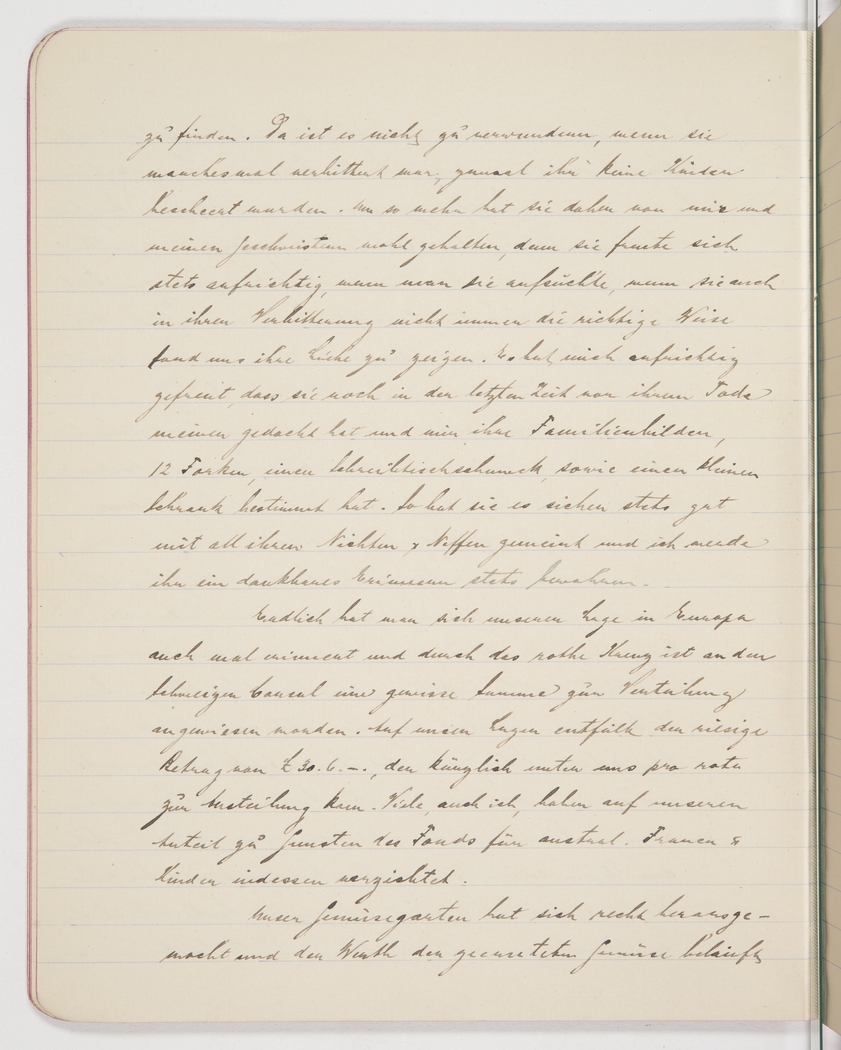 zu finden. Da ist es nicht zu verwundern, wenn sie
manchesmal verbittert war, zumal ihr keine Kinder
bescheert wurden. Um so mehr hat sie daher von mir und
meinen Geschwistern wohl gehalten, denn sie freute sich
stets aufrichtig, wenn man sie aufsuchte, wenn sie auch
in ihrer Verbitterung nicht immer die richtige Weise
fand uns ihre Liebe zu zeigen. Es hat mich aufrichtig
gefreut, dass sie noch in der letzten Zeit vor ihrem Tode
meiner gedacht hat und mir ihre Familienbilder,
12 Forken, einen Schreibtischschmuck, sowie einen kleinen
Schrank bestimmt hat. So hat sie es sicher stets gut
mit all ihren Nichten & Neffen gemeint und ich werde
ihr ein dankbares Erinnern stets bewahren.
Endlich hat man sich unserer Lage in Europa
auch mal erinnert und durch das rothe Kreuz ist an den
Schweizer Consul eine gewisse Summe zur Verteilung
angewiesen worden. Auf unser Lager entfällt der riesige
Betrag von £ 30.6.–., der kürzlich unter uns pro rata
zur Austeilung kam. Viele, auch ich, haben auf unseren
Anteil zu Gunsten des Fonds für austral. Frauen &
Kinder indessen verzichtet.
Unser Gemüsegarten hat sich recht herausge-
macht und der Werth der geernteten Gemüse beläuft